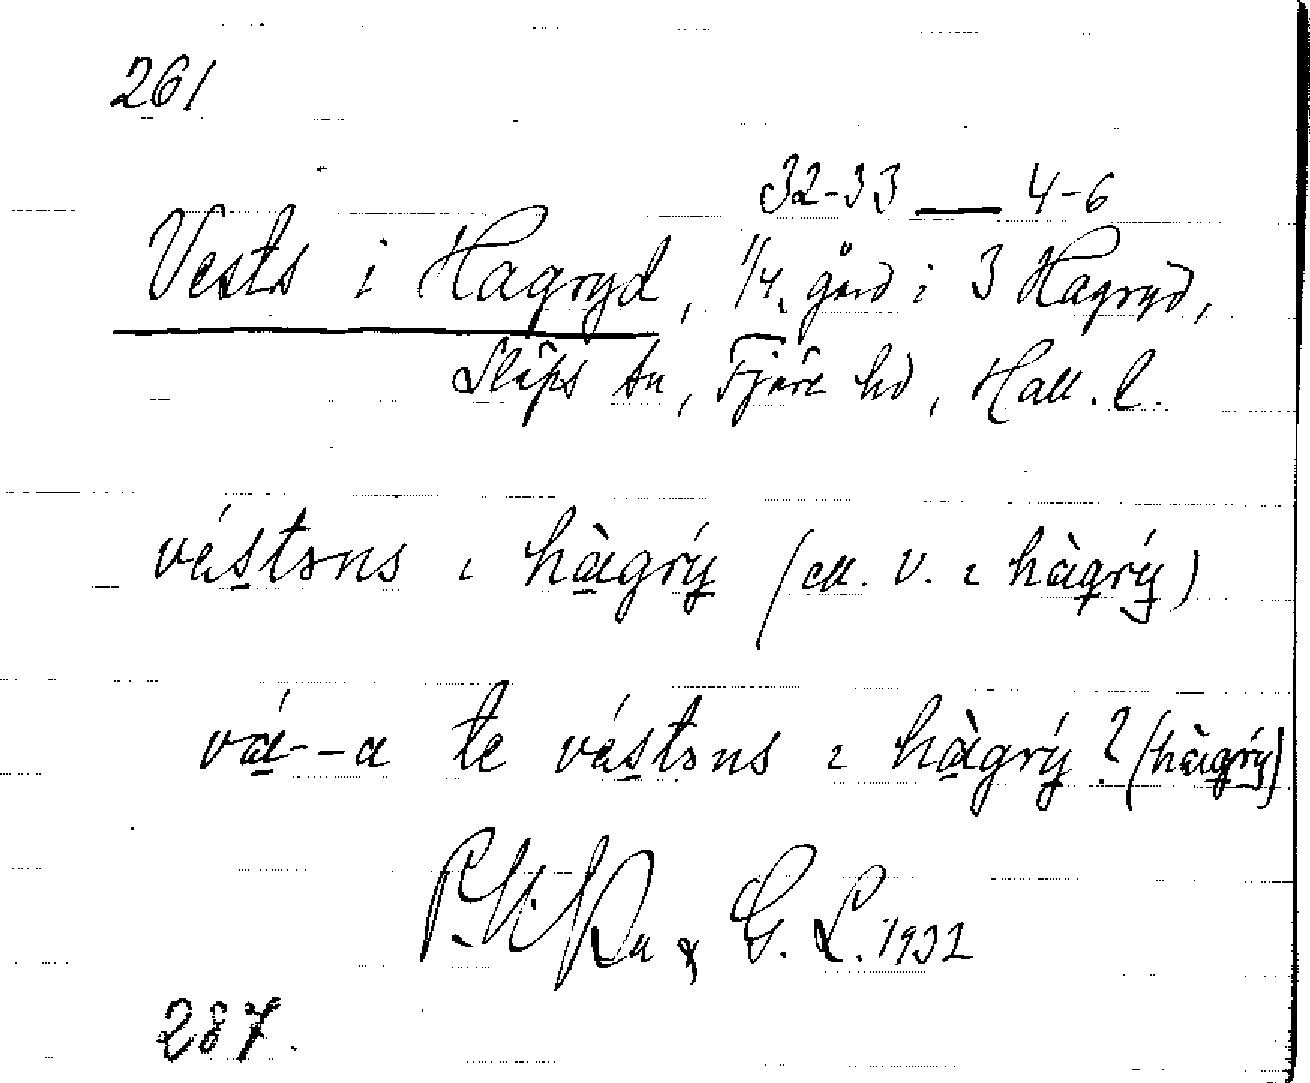 261
32-33 — 4-6
Vests i Hagryd, 1/4 gård i 3 Hagryd,
Släps sn, Fjäre hd, Hall. l.
véstəns ı hàgrý (ell. v. ı hàgrý)
vá--a te véstəns ı hàgrý? (hàgrý)
& G. L. 1932
287.